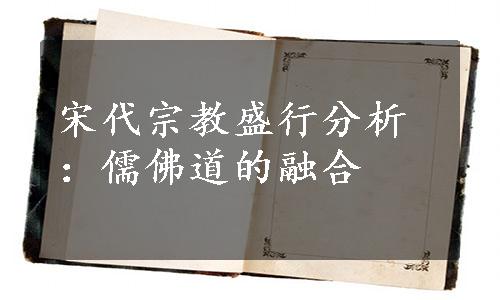 宋代宗教盛行分析
：儒佛道的融合